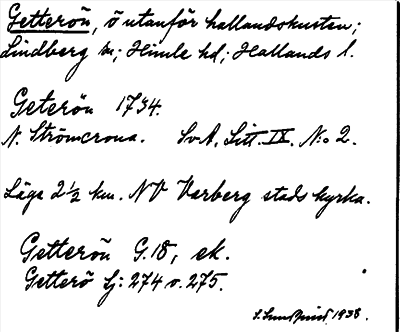 Getterön, ö utanför hallandskusten;
Lindberg sn; Himle hd; Hallands l.
Geterön 1734.
N. Strömcrona. SvA, Litt. IX. N:o 2.
Läge 2 1/2 km. NV Varberg stads kyrka.
Getterön G.18, ek.
Getterö Lj: 274 o. 275.
S. Lundquist 1938.